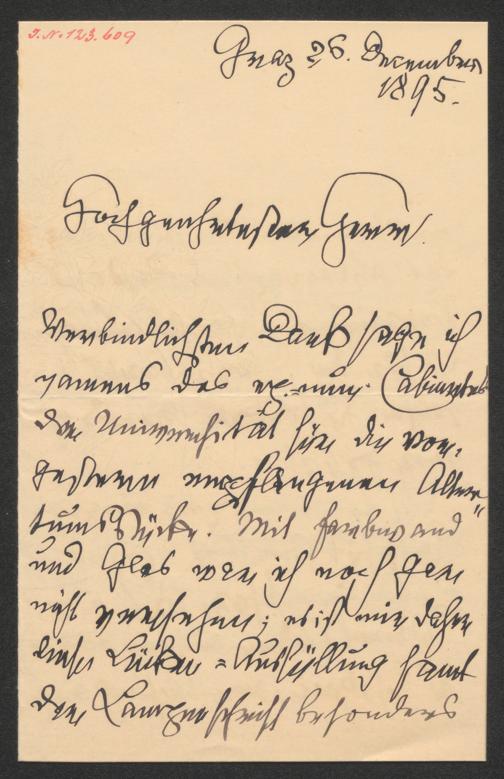 J.N. 123.609
Graz 26. December
1895.
Hochgeehrtester Herr!
Verbindlichsten Dank sage ich
namens des ep.-num. Cabinetes
der Universität für die vor-
gestern empflangenen Alter-
tumsstücke. Mit Farbwand
und Glas war ich noch gar
nicht versehen; es ist mir daher
diese Lücken-Ausfüllung samt
der Lampenschrift besonders